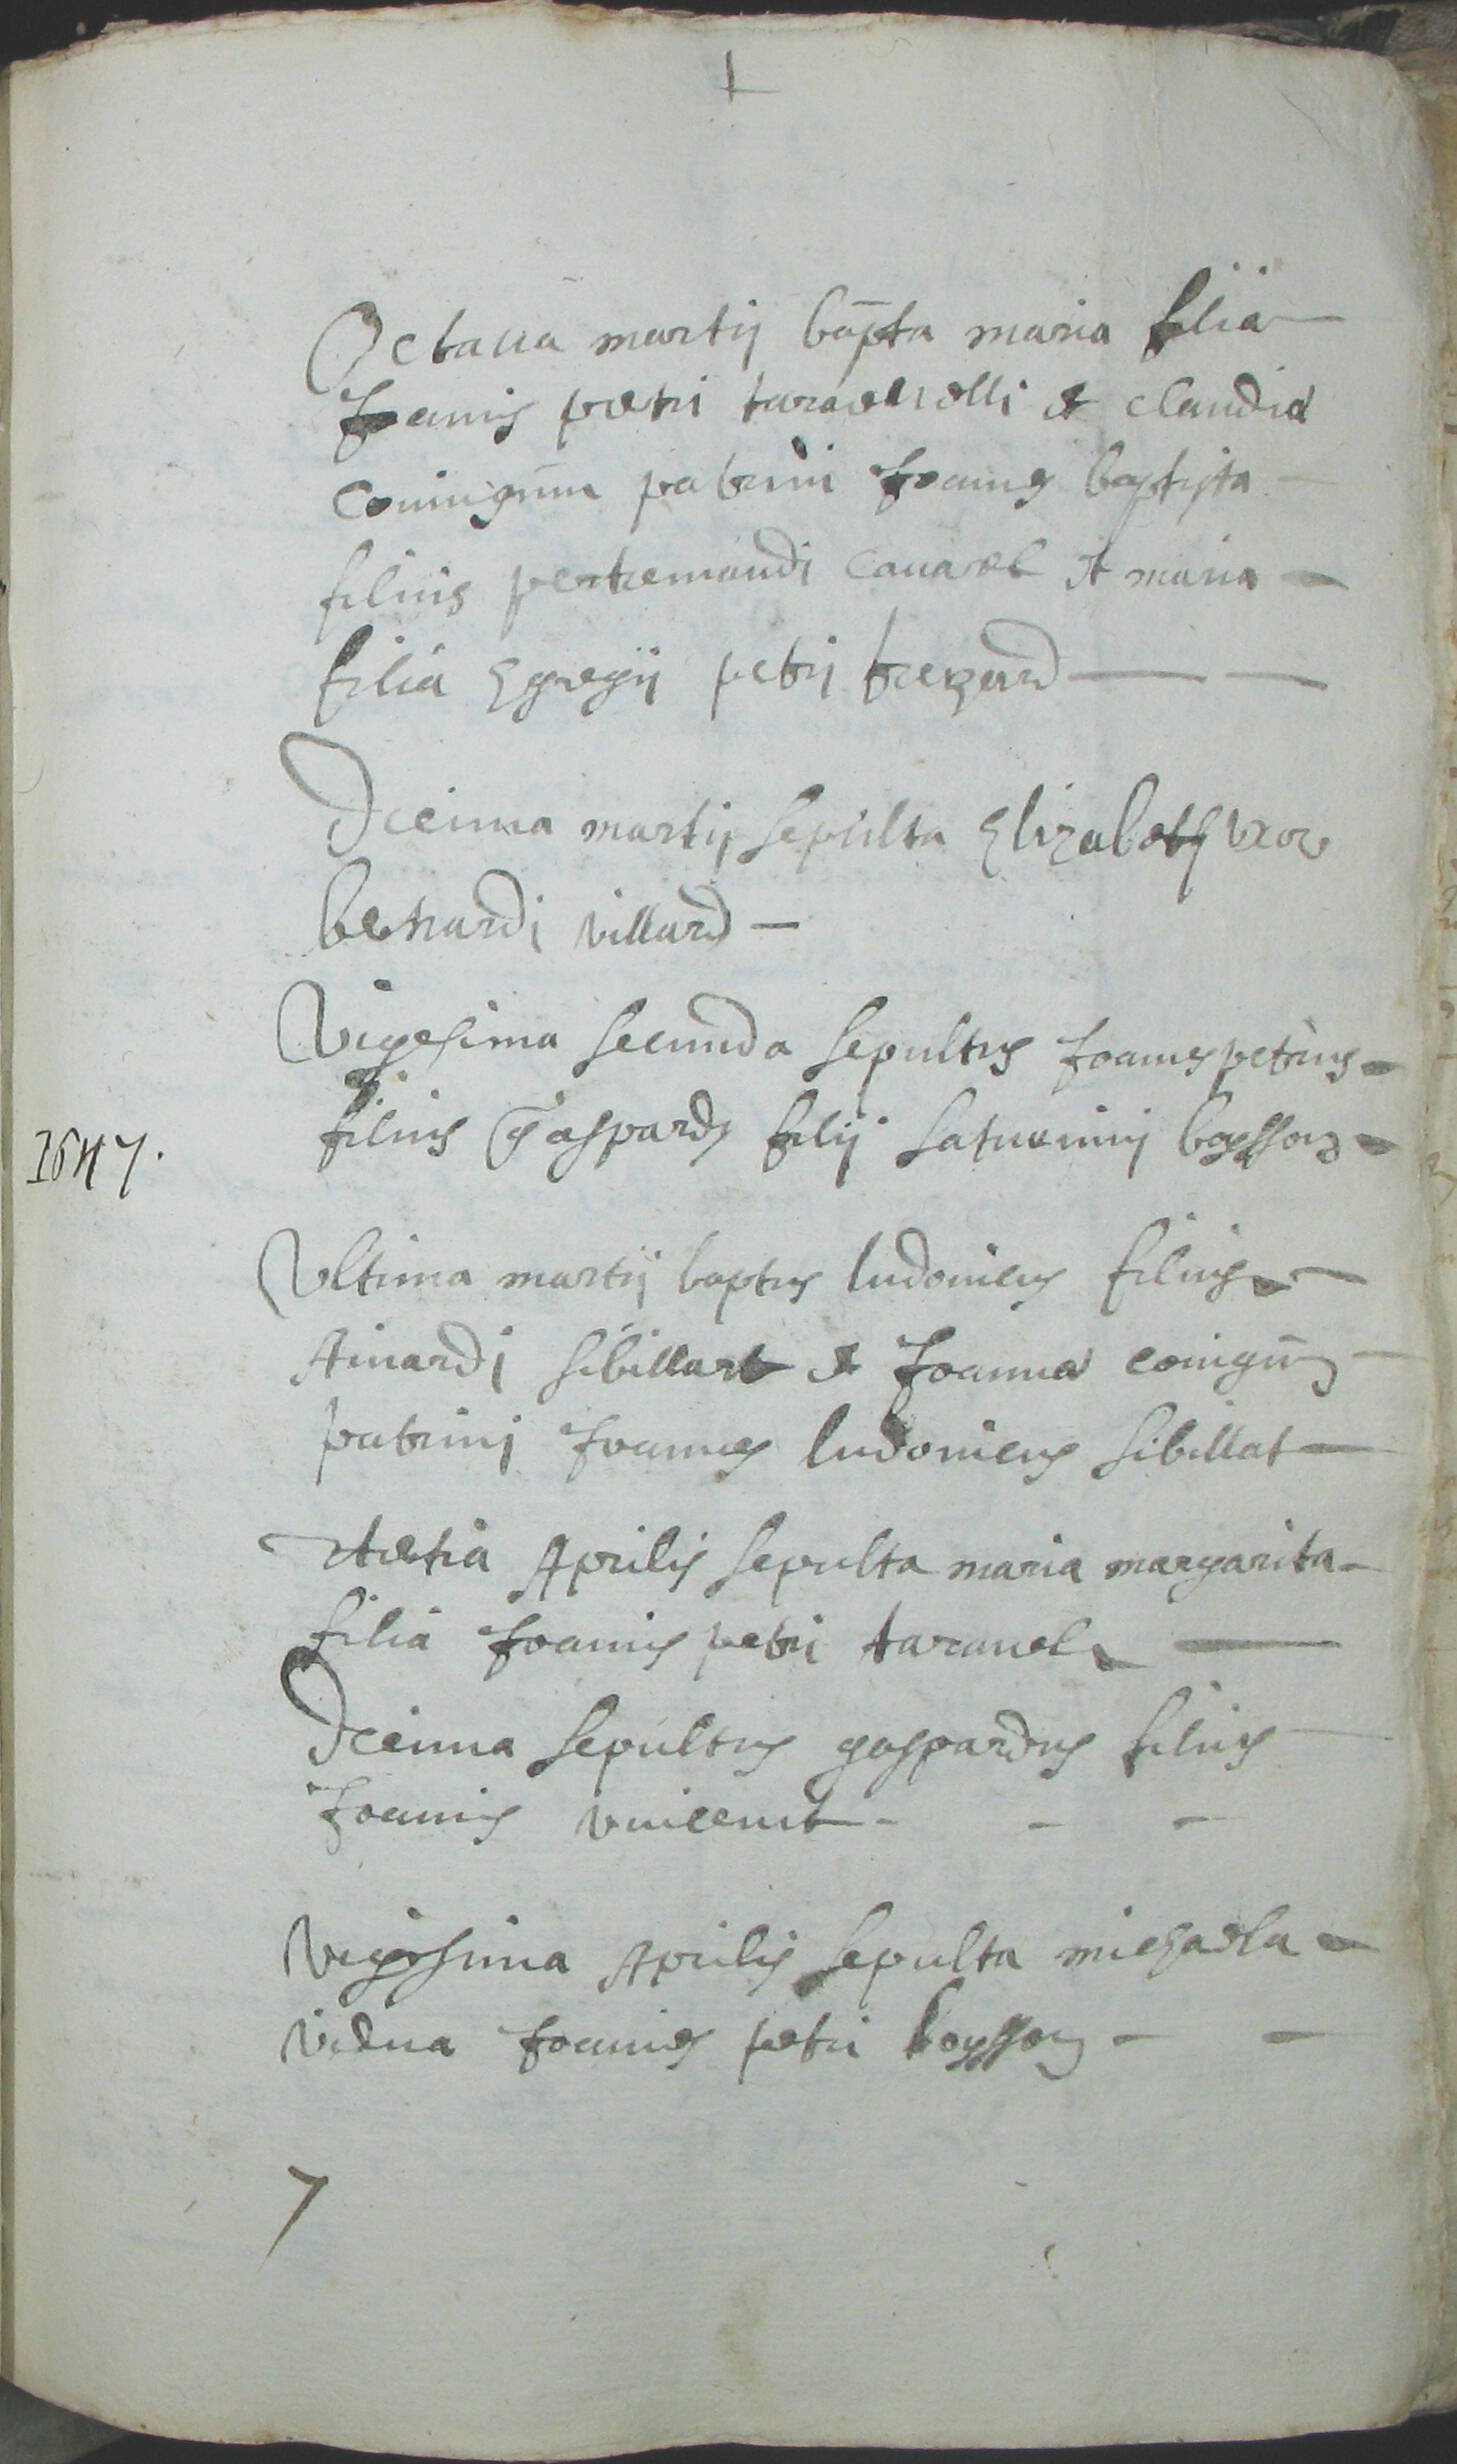 Octaua martij bapta maria filia
Joanis petri taravelli et claudia
coniugum patrini Joannes baptista
filius petremandi cauarel et maria
filia Egregij petrij trezard
Decima martij sepulta Elizabeth vxor
bernardi villard
Vigesima secunda sepultus Joannes petrus
filius Gaspardi filij saturnini boysson
1647.
Vltima martij baptus ludouicus filius
Ainardi sibillat et Joanna coniugum
patrini Joannes ludouicus sibillat
tertia Aprilis sepulta maria margarita
filia Joannis petri tarauel
Decima sepultus gaspardus filius
Joannis vincent
vigesima Aprilis sepulta michaela
vidua Joannis petri boysson
7